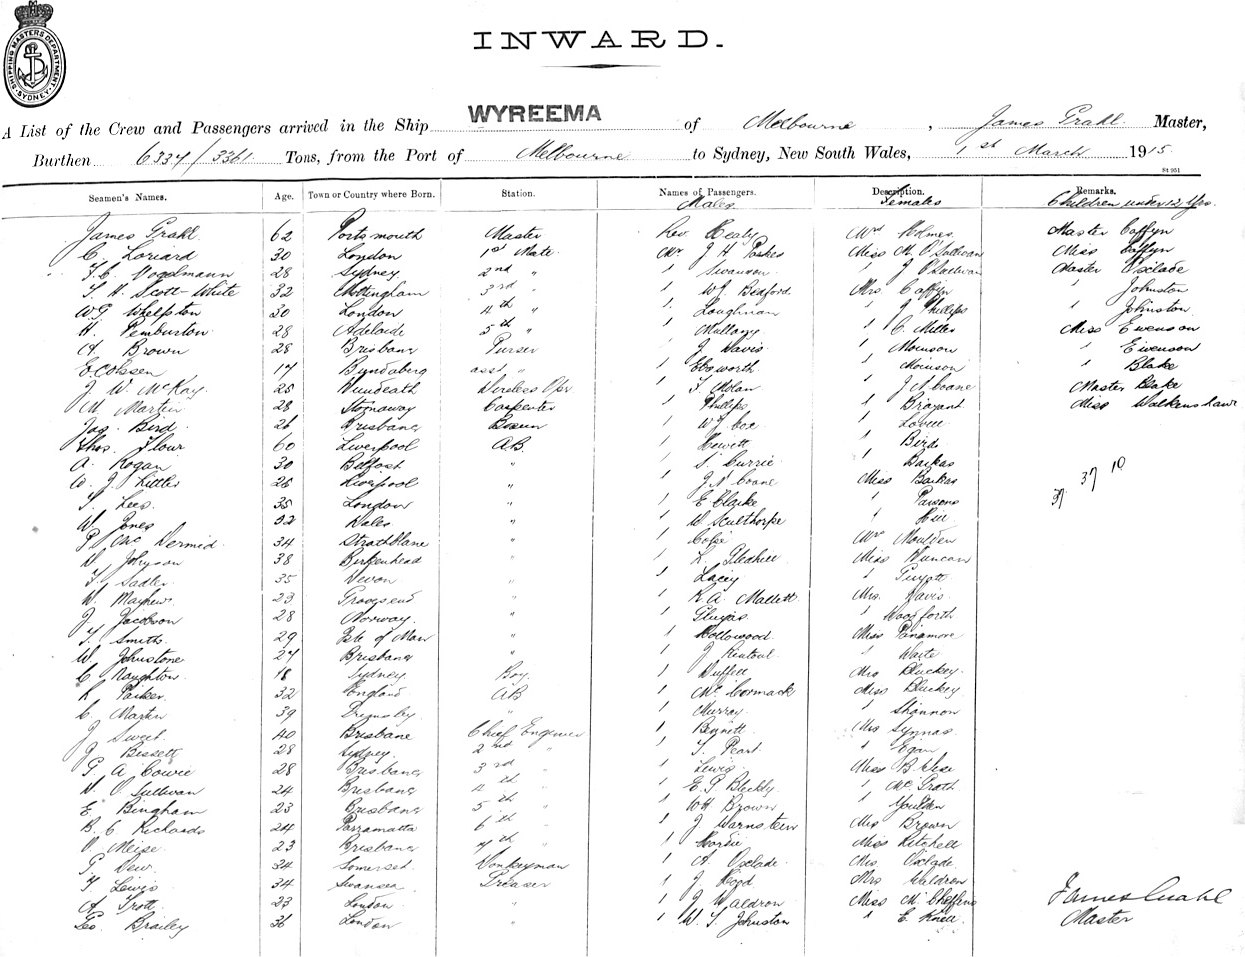 SHIPPING MASTERS DEPARTMENT SYDNEY
INWARD.
A List of the Crew and Passengers arrived in the Ship WYREEMA of Melbourne, James Grahl Master,
Burthen 6337/3361 Tons, from the Port of Melbourne to Sydney, New South Wales, 1st March 1915
St 951
Seamen's Names. Age. Town or Country where Born. Station. Names of Passengers. Description. Remarks.
Males Females Children under 12 Yrs.
James Grahl 62 Portsmouth Master Rev Healy Mrs Holmes Master Caffyn
C. Loriard 30 London 1st Mate Mr J H Miss M. O'Sullivan Miss Caffyn
F. C. Vogelmann 28 Sydney 2nd " 1 Swanson 1 J O'Sullivan Master Oxlade
T. H. Scott-White 32 Nottingham 3rd " 1 W J Bedford Mrs Caffyn 1 Johnston
W G Whelpton 30 London 4th " 1 Loughnan 1 J Phillips 1 Johnston
H. Pemburton 28 Adelaide 5th " 1 Mullany 1 C. Miller Miss Ewenson
A. Brown 28 Brisbane Purser 1 J Davis 1 Morrison 1 Ewenson
17 Bundaberg asst " 1 Ebsworth 1 Morrison 1 Blake
J. W. McKay 25 Dundeath Wireless Opr 1 T Nolan 1 J N Coane Master Blake
M Martin 28 Stornaway Carpenter 1 Phillips 1 Bryant Miss Walkenshaw
Jas. Bird 26 Brisbane Bosun 1 W J Coe 1 Lovell
Thos. Flour 60 Liverpool AB 1 Hewitt 1 Bird
A. Hogan 30 Belfast " 1 S. Currie 1 Barkas
W. J Littler 26 Liverpool " 1 J N Coane Miss Barkas
T. Lees 35 London " 1 E Clarke 1 Parsons
37 37 10
W. Jones 32 Wales " 1 W Sculthorpe 1 Hill
P. McDermid 34 Strathblane " 1 Mrs Moulden
W Johnson 38 Birkenhead 1 L. Gledhill Miss Duncan
T. Sadler 35 Devon " 1 Lacey 1
W. Mayhew 23 Gravesend " 1 R. A. Mallett Mrs. Davis
J Jacobson 28 Norway " 1 1 Woodforth
T. Smith 29 Isle of Man " 1 Hollowood Miss Panamore
W. Johnstone 27 Brisbane " 1 J Rintoul 1 Waite
C Naughton 18 Sydney Boy 1 Duffell Mrs Bluckey
R Parker 32 England AB 1 McCormack Miss Bluckey
C. Martin 39 Grimsby " 1 Murray 1 Shannon
J Sweet 40 Brisbane Chief Engineer 1 Bennett Mrs Synnas
J Bissett 28 Sydney 2nd " 1 T. Peart 1 Egan
P A Cowie 28 Brisbane 3rd " 1 Lewis Miss B Wise
D. Sullivan 24 Brisbane 4th " 1 E. P. Bleckly 1 McGrath
E Bingham 23 Brisbane 5th " 1 W H Brown 1 Youlden
B. C Richards 24 Parramatta 6th " 1 J Warnstein Mrs Brown
V Meise 23 Brisbane 7th " 1 Miss Kitchell
P. Dew 34 Somerset Donkeyman 1 A Oxlade Mrs Oxlade
T Lewis 34 Swansea Greaser 1 J Hood Mrs Waldron
A Trott 23 London " 1 J Waldron Miss M. Cheffins
Geo. Brailey 36 London " 1 W. T. Johnston 1 E. Knell
James Grahl
Master